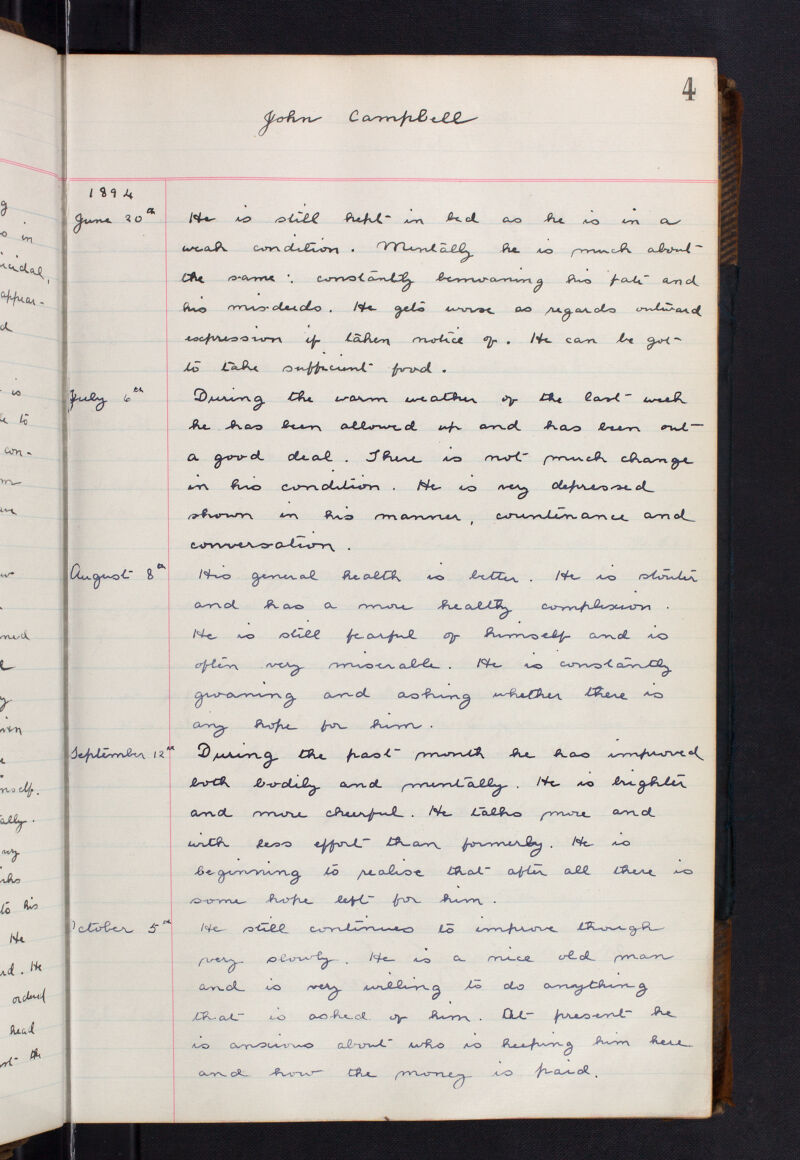 4
John Campbell
1894
June 20th He is still kept in bed as he is in a
weak condition. Mentally he is much about
the same: constantly bemoaning his fate and
his misdeeds. He gets worse as regards outward
expression if taken notice of. He can be got
to take sufficient food.
July 6th During the warm weather of the last week
he has been allowed up and has been out
a good deal. There is not much change
in his condition. He is very depressed
shown in his manner, countenance and
conversation.
August 8th His general health is better. He is stouter
and has a more healthy complexion.
He is still fearful of himself and is
often very miserable. He is constantly
groaning and asking whether there is
any hope for him.
September 12th During the past month he has improved
both bodily and mentally. He is brighter
and more cheerful. He talks more and
with less effort than formerly. He is
beginning to realise that after all there is
some hope left for him.
October 5th He still continues to improve though
very slowly. He is a nice old man
and is very willing to do anything
that is asked of him. At present he
is anxious about who is keeping him here
and how the money is paid.